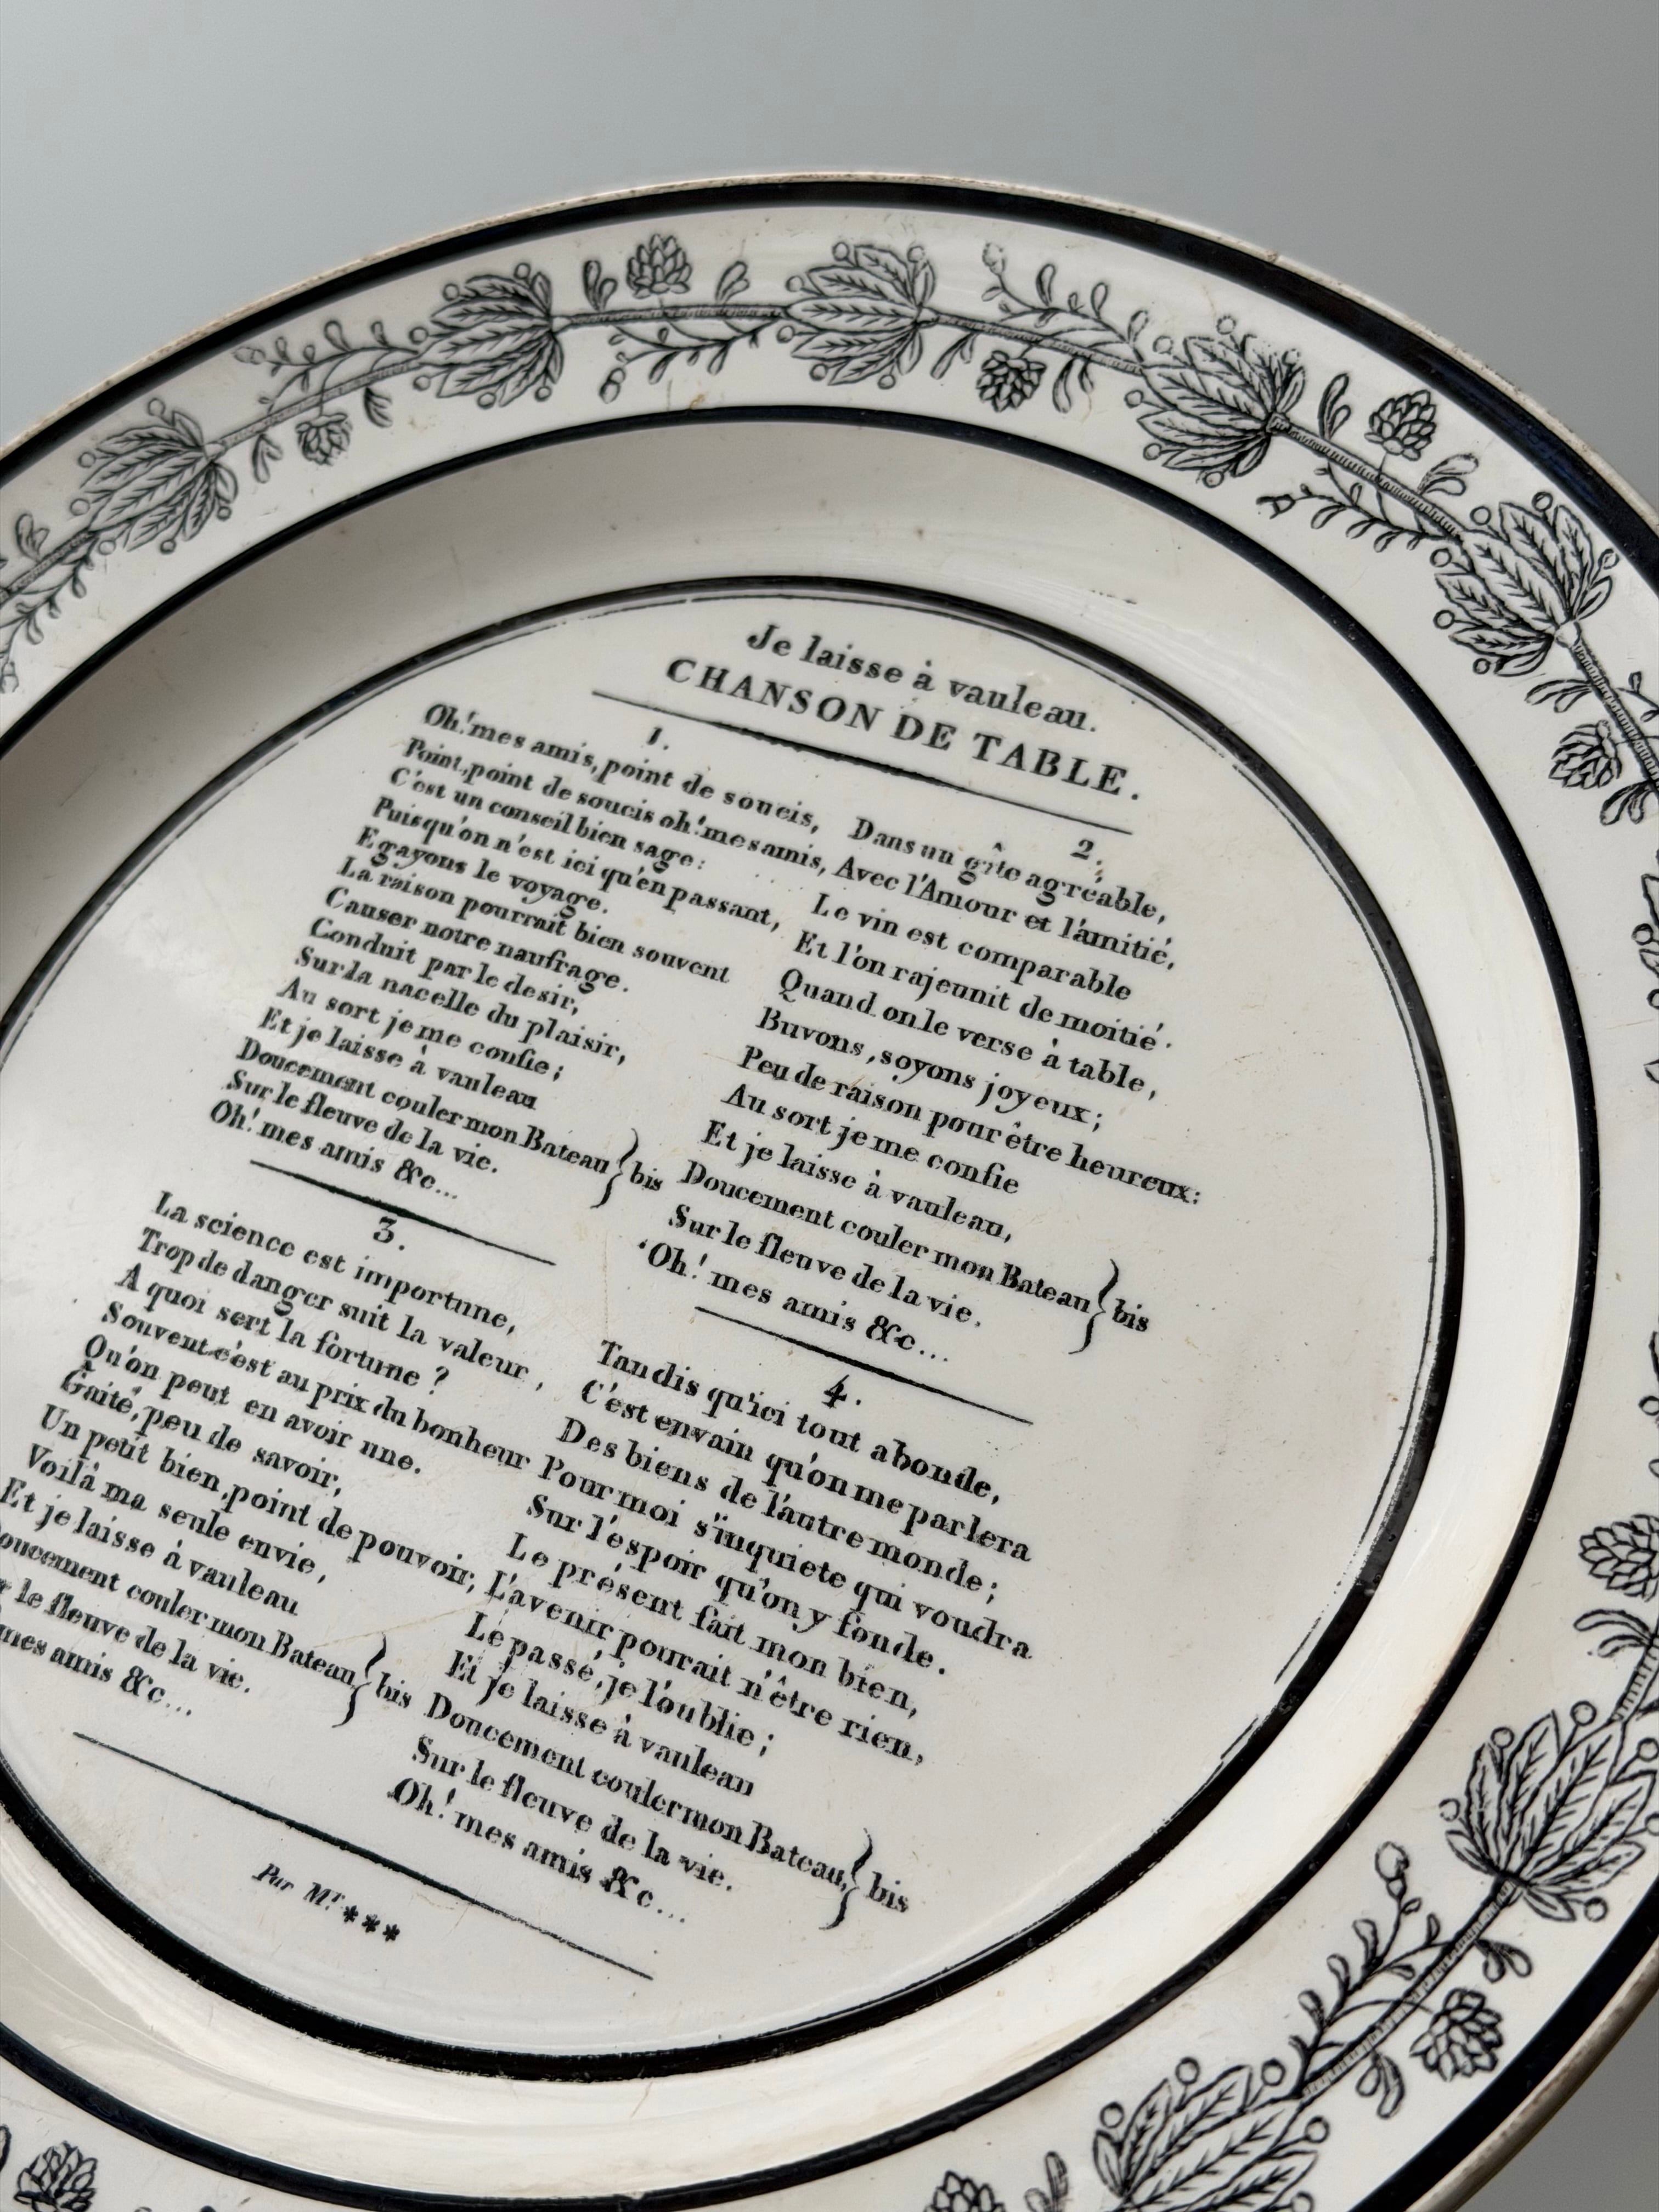 Je laisse à vauleau.
CHANSON DE TABLE.
1.
Oh! mes amis, point de soucis,
Point, point de soucis oh! mes amis,
C'est un conseil bien sage:
Puisqu'on n'est ici qu'en passant,
Egayons le voyage.
La raison pourrait bien souvent
Causer notre naufrage.
Conduit par le desir,
Sur la nacelle du plaisir,
Au sort je me confie;
Et je laisse à vauleau
Doucement couler mon Bateau
Sur le fleuve de la vie. } bis
Oh! mes amis &c...
2.
Dans un gîte agréable,
Avec l'Amour et l'amitié,
Le vin est comparable
Et l'on rajeunit de moitié.
Quand on le verse à table,
Buvons, soyons joyeux;
Peu de raison pour être heureux:
Au sort je me confie
Et je laisse à vauleau,
Doucement couler mon Bateau
Sur le fleuve de la vie. } bis
Oh! mes amis &c...
3.
La science est importune,
Trop de danger suit la valeur,
A quoi sert la fortune ?
Souvent c'est au prix du bonheur
Qu'on peut en avoir une.
Gaité, peu de savoir,
Un petit bien, point de pouvoir;
Voilà ma seule envie,
Et je laisse à vauleau
oucement couler mon Bateau
le fleuve de la vie. } bis
mes amis &c...
4.
Tandis qu'ici tout abonde,
C'est envain qu'on me parlera
Des biens de l'autre monde;
Pour moi s'inquiete qui voudra
Sur l'espoir qu'on y fonde.
Le présent fait mon bien,
L'avenir pourait n'être rien,
Le passé, je l'oublie;
Et je laisse à vauleau
Doucement couler mon Bateau,
Sur le fleuve de la vie. } bis
Oh! mes amis &c...
Par Mr. ***